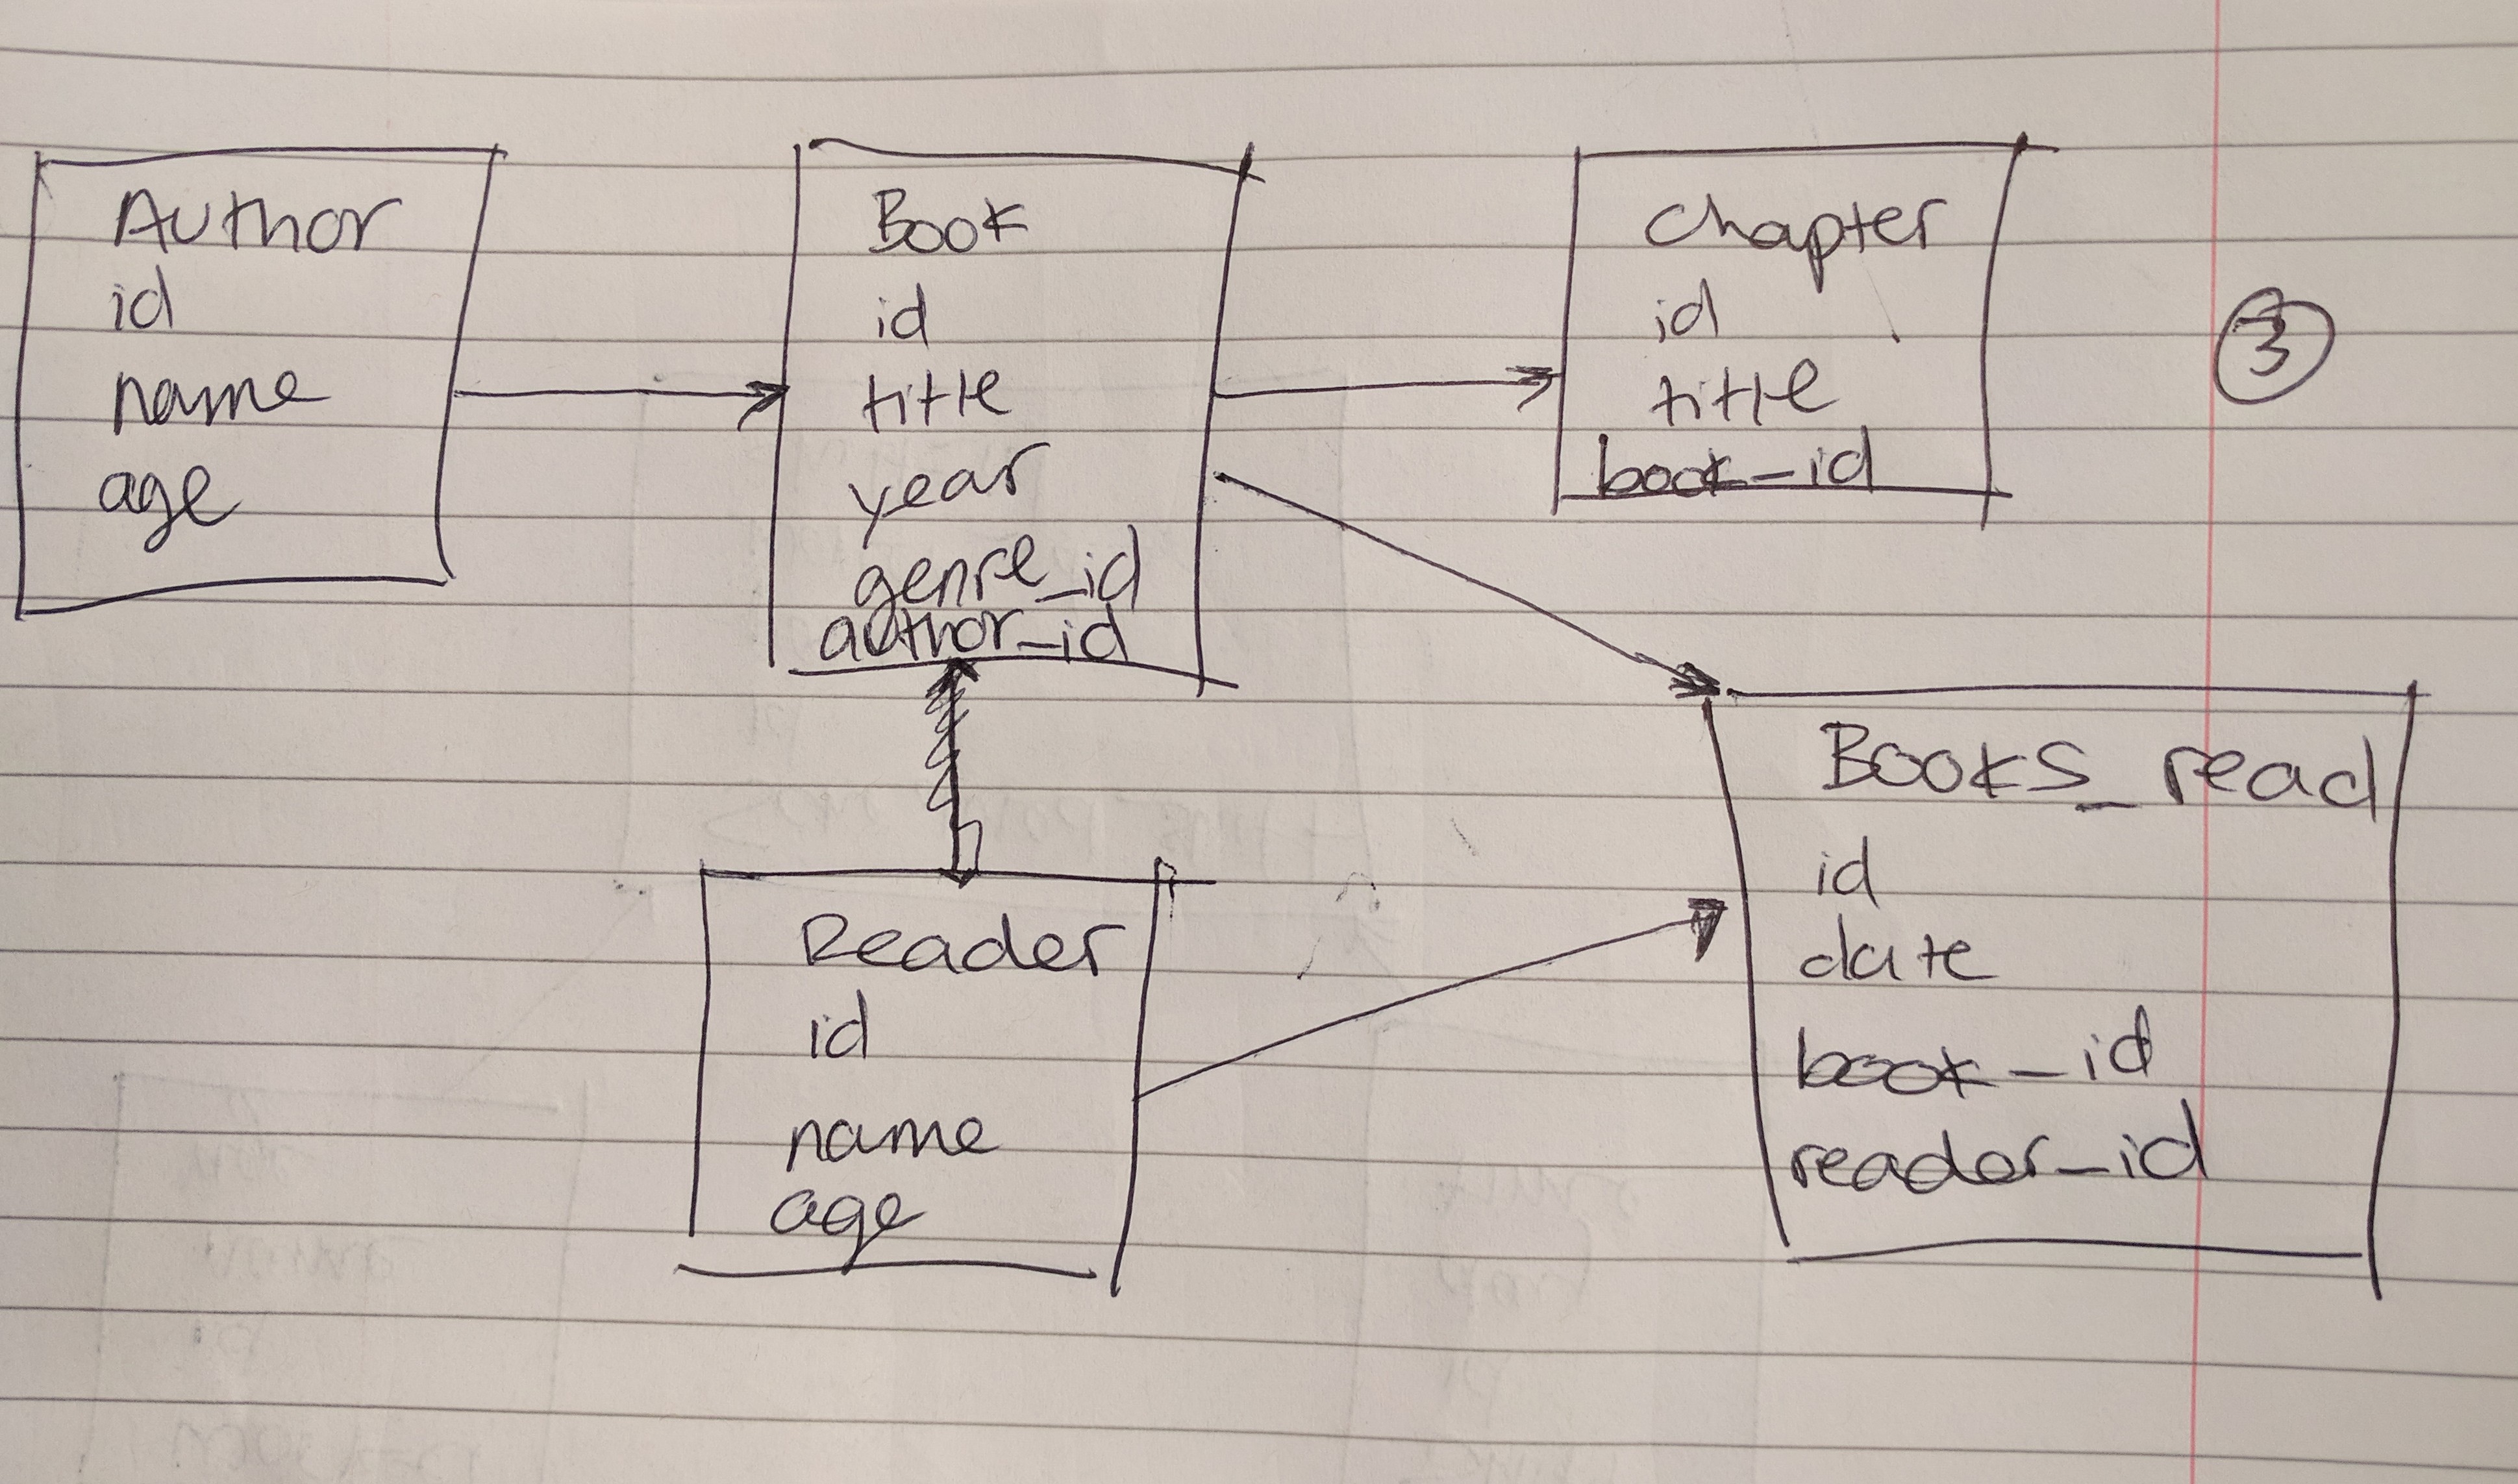 Author
id
name
age
Book
id
title
year
genre_id
author_id
chapter
id
title
book_id
3
Reader
id
name
age
Books_read
id
date
book_id
reader_id